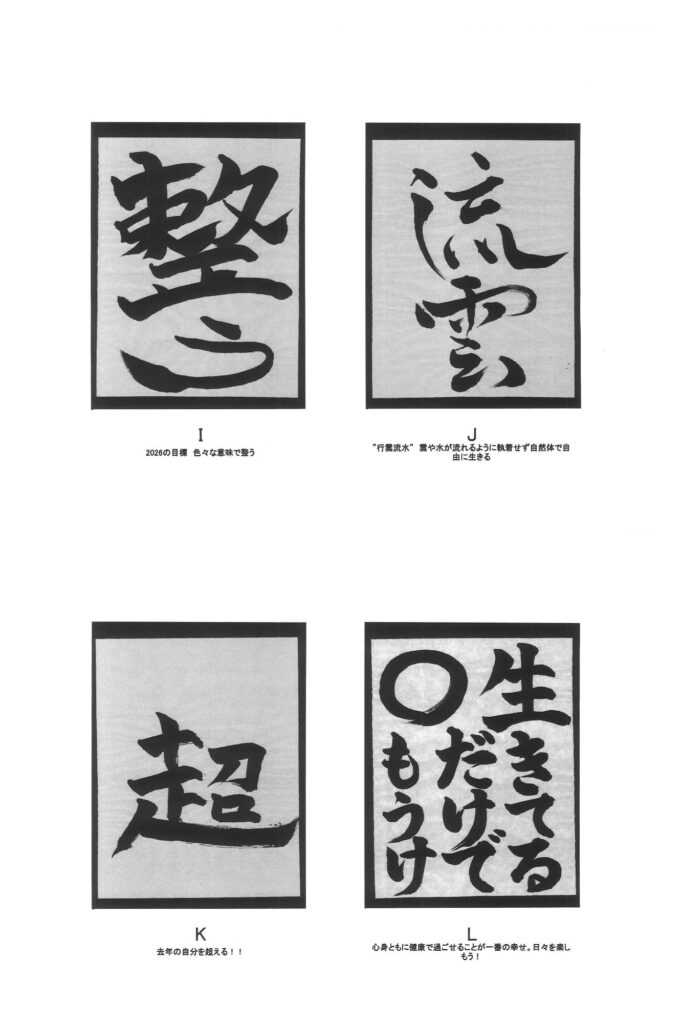 整う
I
2026の目標 色々な意味で整う
流雲
J
"行雲流水" 雲や水が流れるように執着せず自然体で自
由に生きる
超
K
去年の自分を超える！！
生きてる
だけで
〇もうけ
L
心身ともに健康で過ごせることが一番の幸せ。日々を楽し
もう！